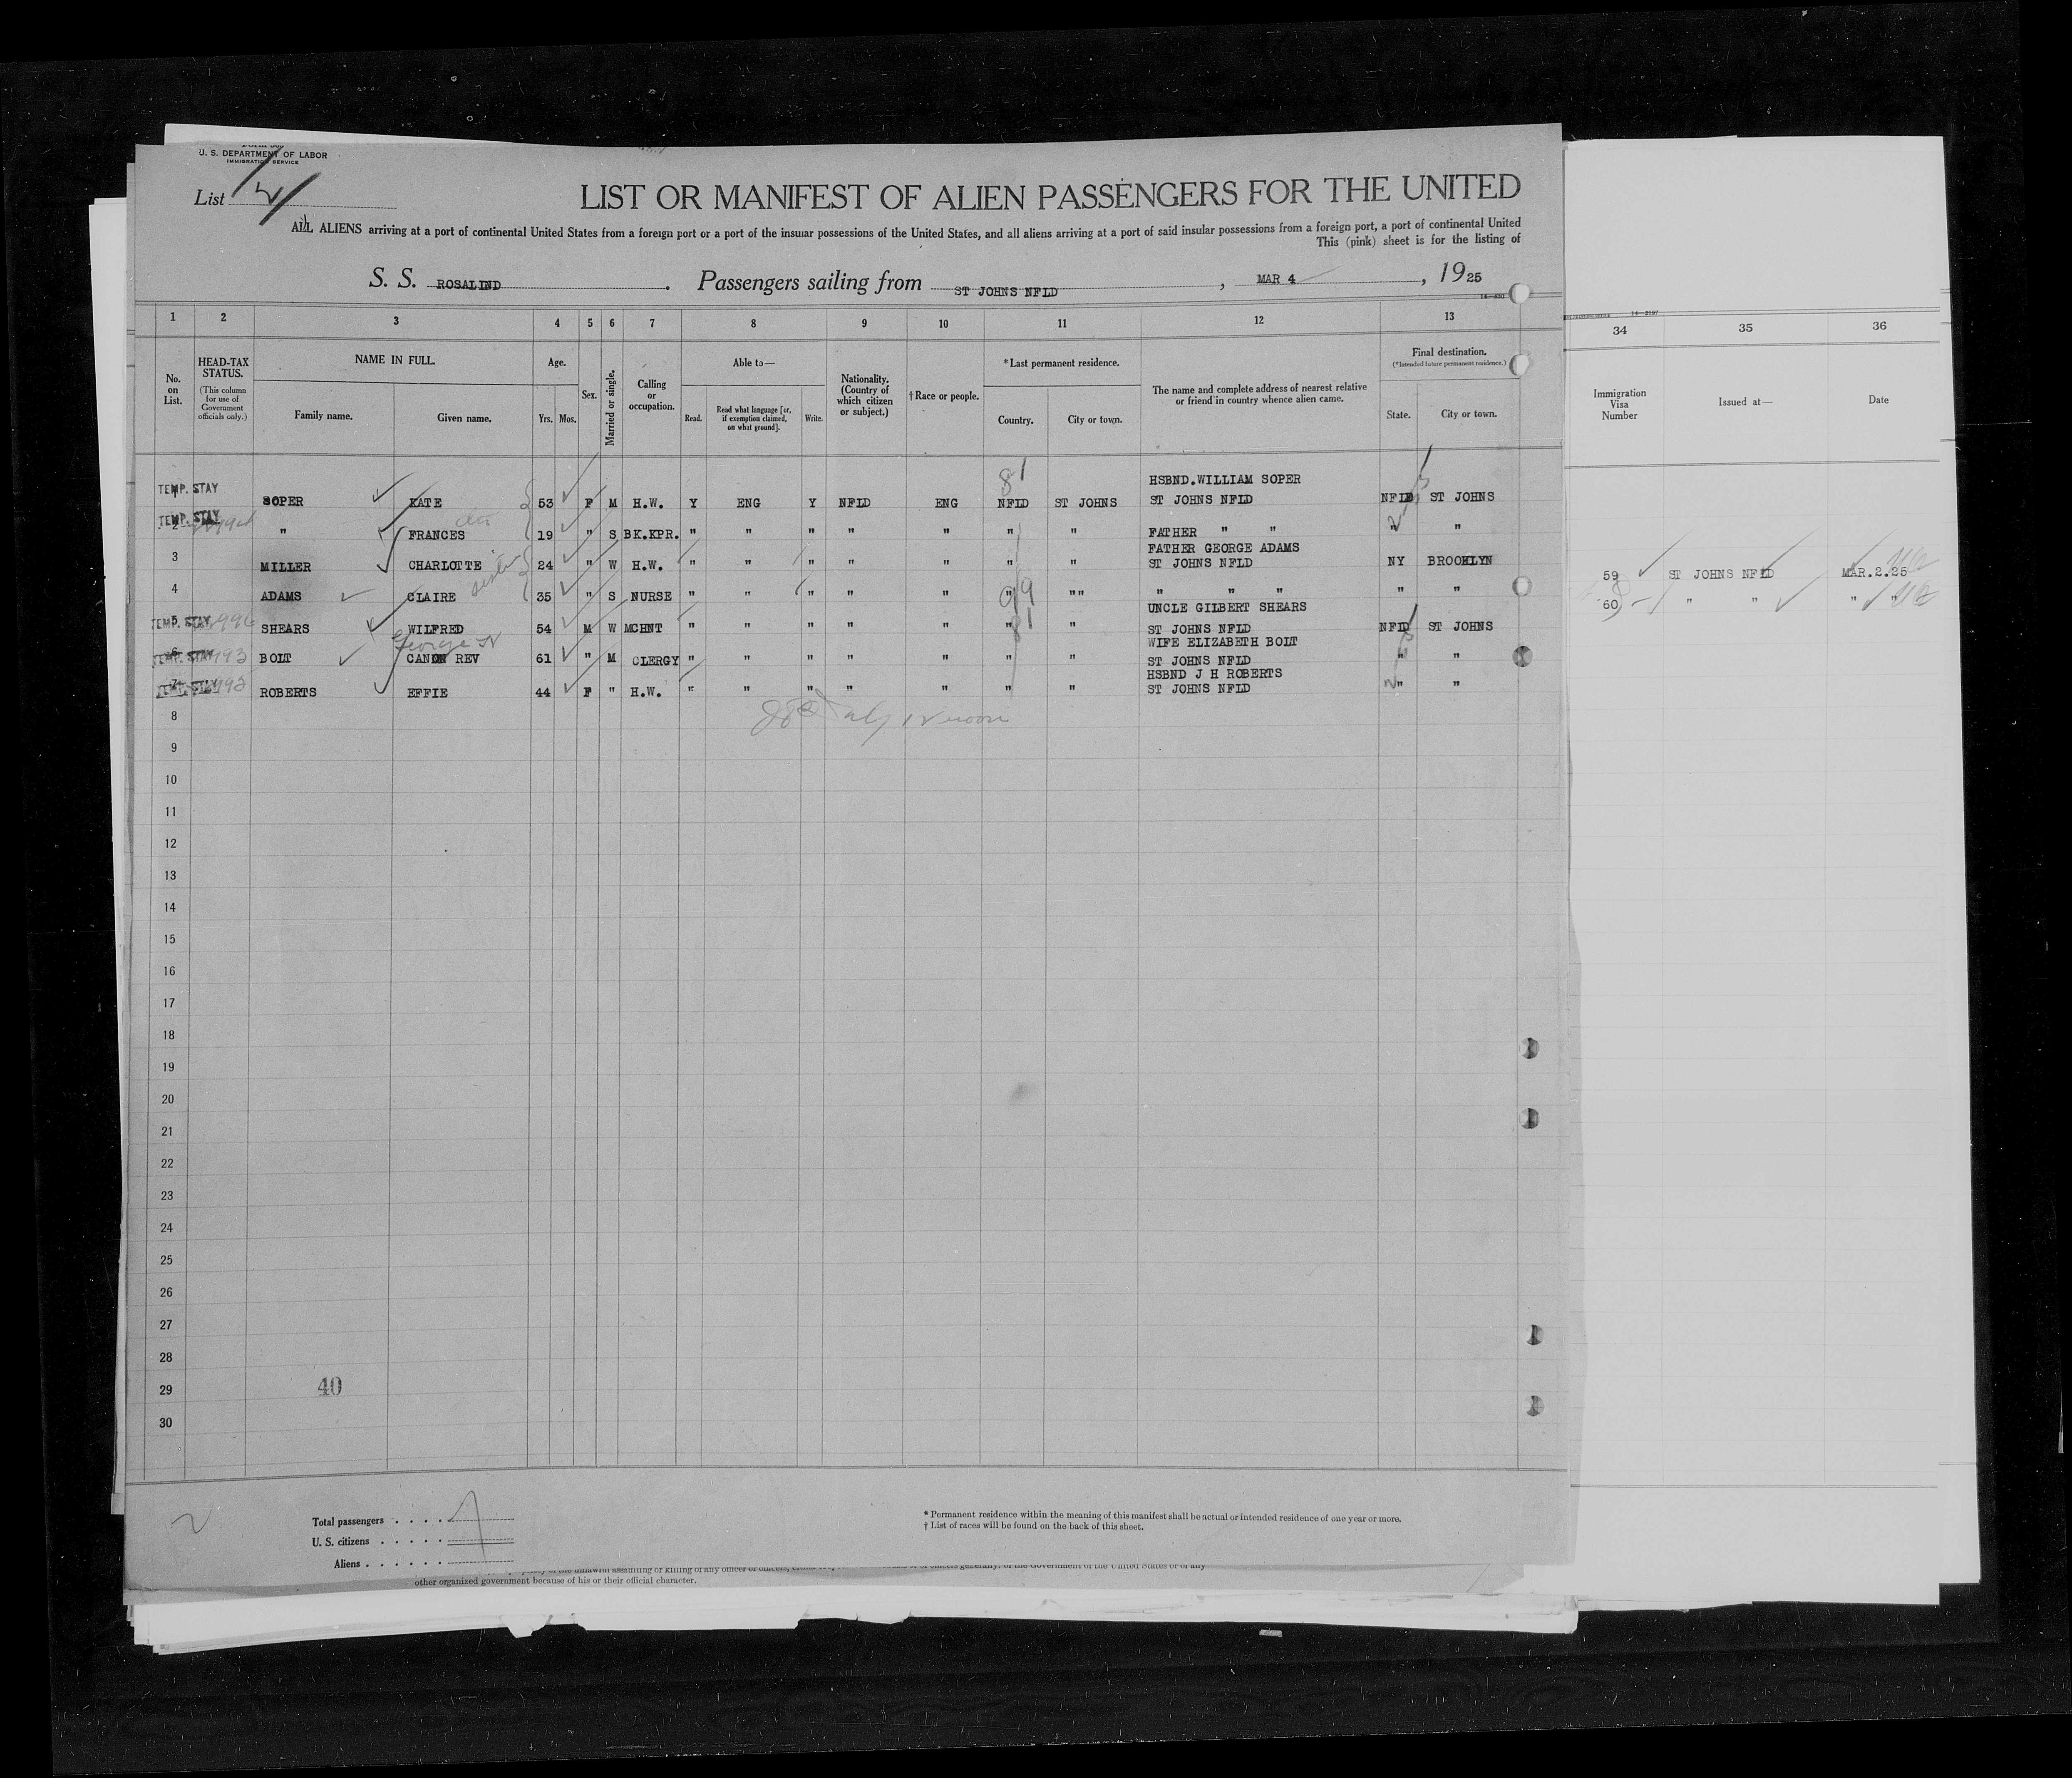 U. S. DEPARTMENT OF LABOR
IMMIGRATION SERVICE
List
LIST OR MANIFEST OF ALIEN PASSENGERS FOR THE UNITED
ALL ALIENS arriving at a port of continental United States from a foreign port or a port of the insular possessions of the United States, and all aliens arriving at a port of said insular possessions from a foreign port, a port of continental United
This (pink) sheet is for the listing of
S. S. ROSALIND. Passengers sailing from ST JOHNS NFLD, MAR 4, 1925
1 2 3 4 5 6 7 8 9 10 11 12 13 34 35 36
No. on List.
HEAD-TAX STATUS.
(This column for use of Government officials only.)
NAME IN FULL.
Family name. Given name.
Age.
Yrs. Mos.
Sex.
Married or single.
Calling or occupation.
Able to—
Read. Read what language [or, if exemption claimed, on what ground]. Write.
Nationality. (Country of which citizen or subject.)
†Race or people.
*Last permanent residence.
Country. City or town.
The name and complete address of nearest relative or friend in country whence alien came.
Final destination.
(*Intended future permanent residence.)
State. City or town.
Immigration Visa Number
Issued at—
Date
81
HSBND.WILLIAM SOPER
1 TEMP. STAY SOPER KATE 53 F M H.W. Y ENG Y NFLD ENG NFLD ST JOHNS ST JOHNS NFLD NFLD ST JOHNS
2 TEMP. STAY " FRANCES 19 " S BK.KPR. " " " " " " " FATHER " " " "
FATHER GEORGE ADAMS
3 MILLER CHARLOTTE sister 24 " W H.W. " " " " " " " ST JOHNS NFLD NY BROOKLYN 59 ST JOHNS NFLD MAR.2.25
4 ADAMS CLAIRE 35 " S NURSE " " " " " " "" " " " " " 60 " " " "
UNCLE GILBERT SHEARS
5 TEMP. STAY SHEARS WILFRED 54 M W MCHNT " " " " " " " ST JOHNS NFLD NFLD ST JOHNS
George
WIFE ELIZABETH BOLT
6 TEMP. STAY BOLT CANON REV 61 " M CLERGY " " " " " " " ST JOHNS NFLD " "
HSBND J H ROBERTS
7 TEMP. STAY ROBERTS EFFIE 44 F " H.W. " " " " " " " ST JOHNS NFLD " "
8
9
10
11
12
13
14
15
16
17
18
19
20
21
22
23
24
25
26
27
28
29 40
30
Total passengers . . . .
U. S. citizens . . . . .
Aliens . . . . . .
* Permanent residence within the meaning of this manifest shall be actual or intended residence of one year or more.
† List of races will be found on the back of this sheet.
other organized government because of his or their official character.